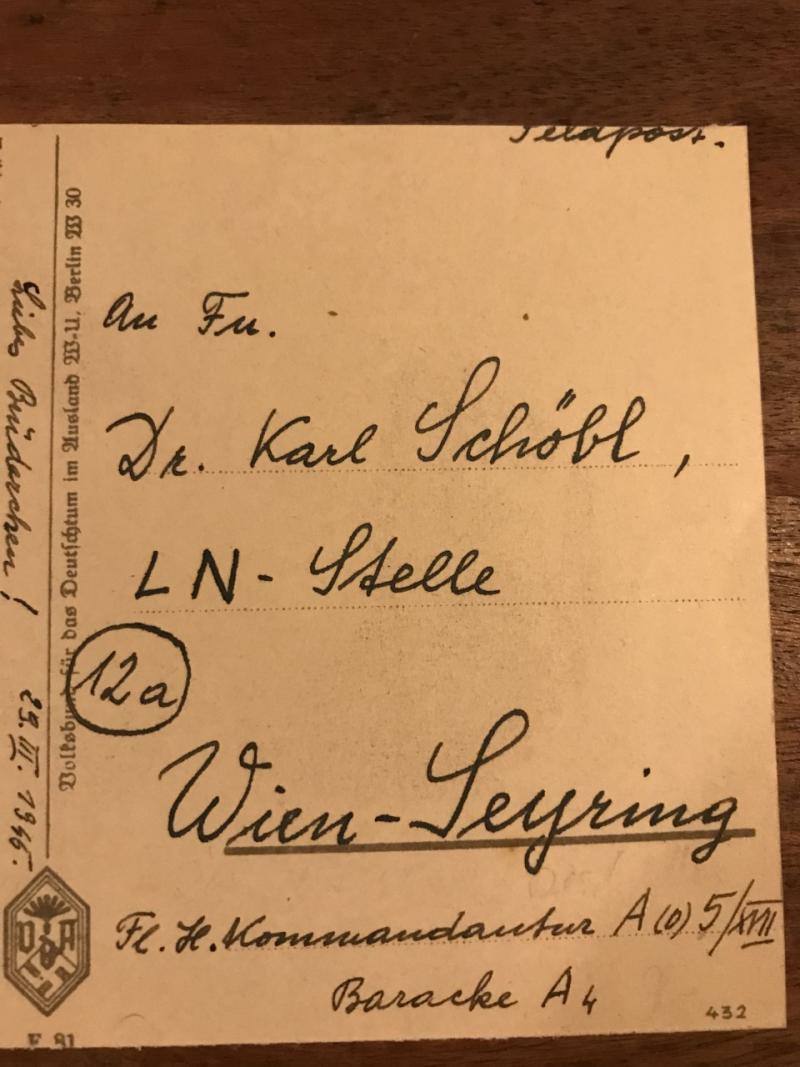 Feldpost.
An Fu.
Dr. Karl Schöbl,
LN - Stelle
12a
Wien - Seyring
Fl. H. Kommandantur A (o) 5/XVII
Baracke A 4
432
Volksbund für das Deutschtum im Ausland W-U, Berlin W 30
Liebes Brüderchen! 29. III. 1945.
VDA